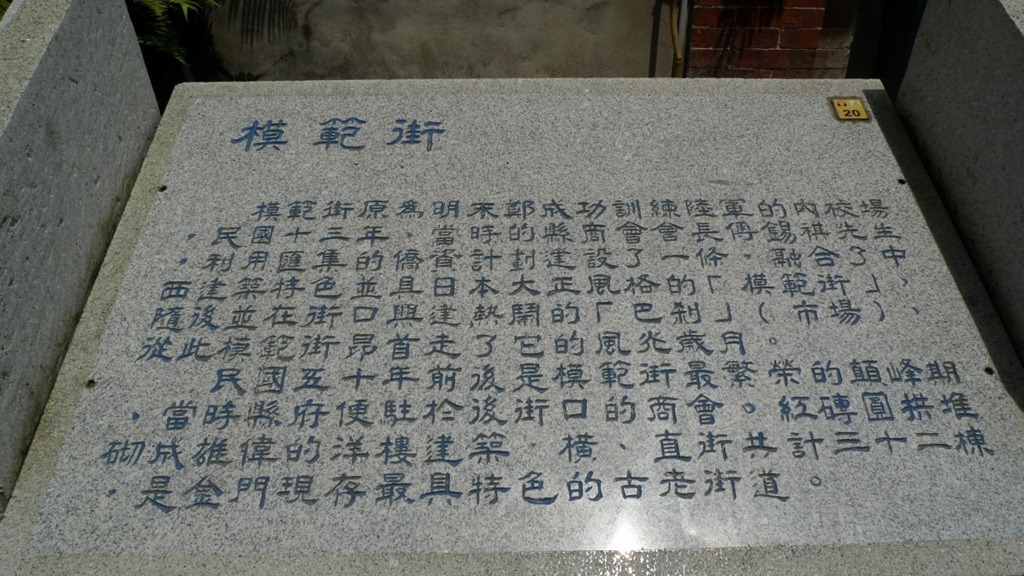 模範街
20
模範街原為明末鄭成功訓練陸軍的內校場
，民國十三年，當時的縣商會會長傅錫祺先生
，利用匯集的僑資計劃建設了一條融合了中
西建築特色並具日本大正風格的「模範街」，
隨後並在街口與建熱鬧的「巴剎」（市場），
從此模範街昂首走了它的風光歲月。
民國五十年前後是模範街最繁榮的顛峰期
，當時縣府便駐於後街口的商會。紅磚圓拱堆
砌成雄偉的洋樓建築，橫、直街共計三十二棟
，是金門現存最具特色的古老街道。